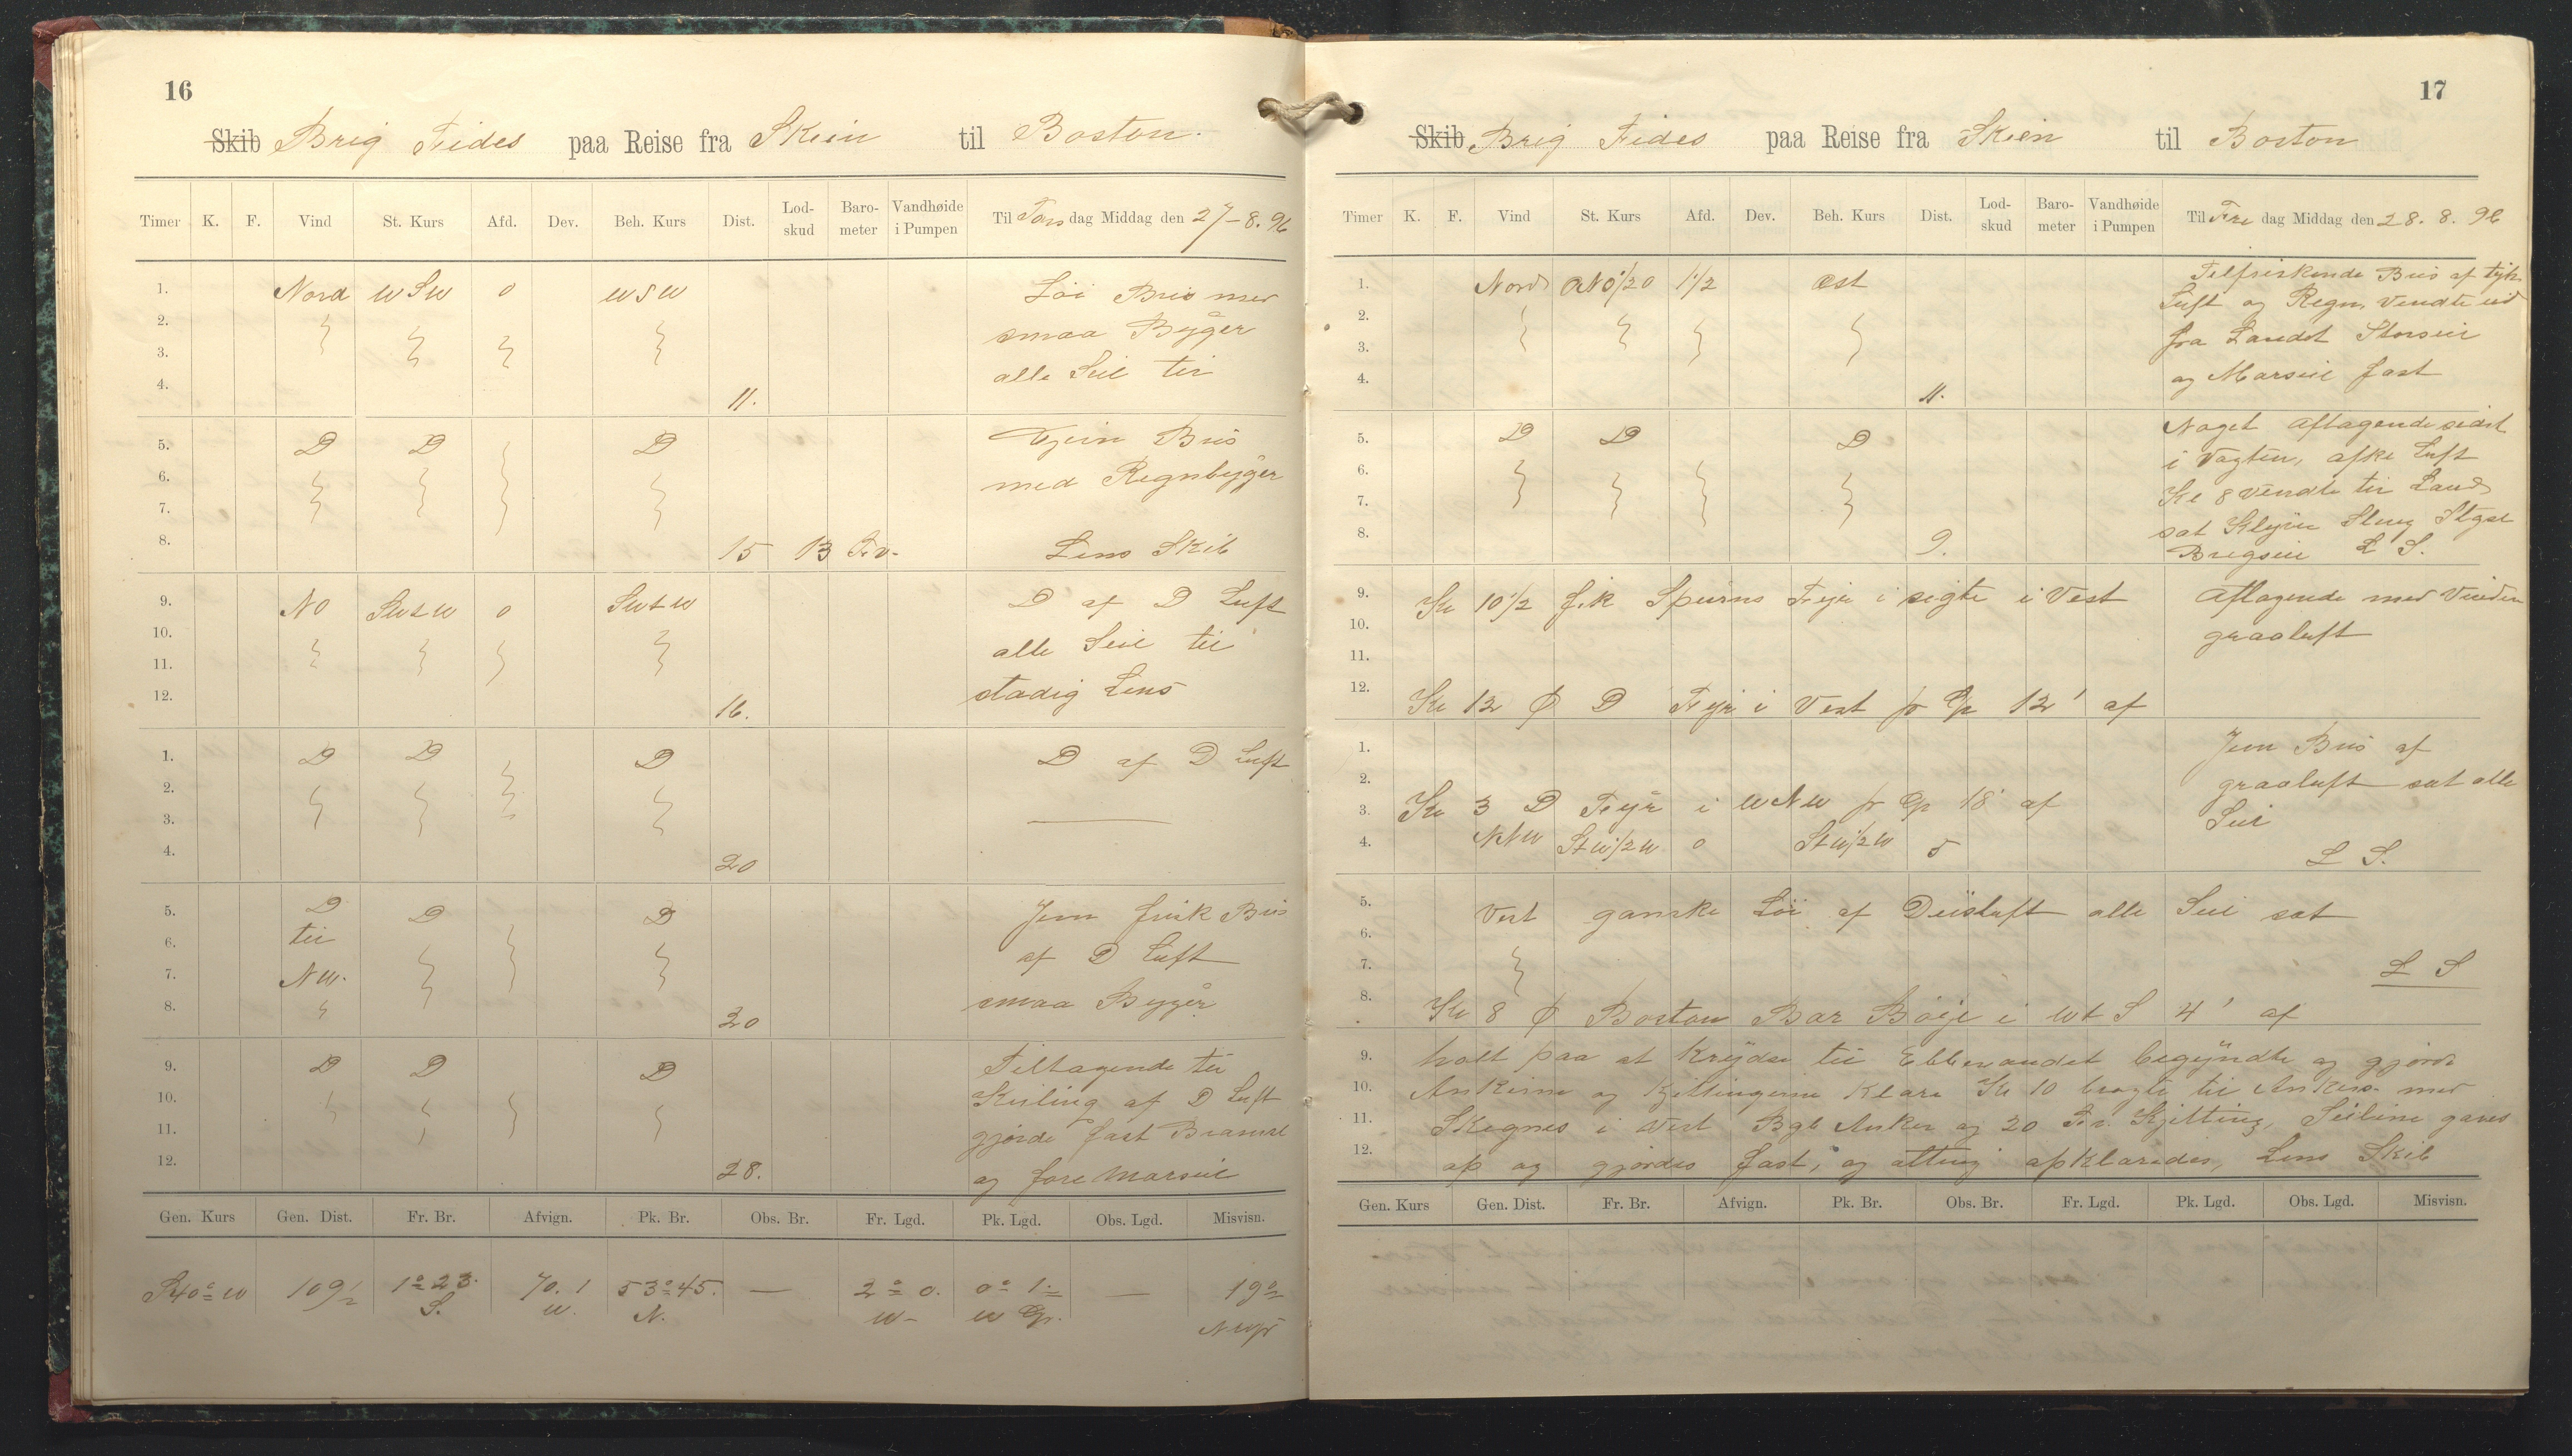 16
Skib Brig Fides paa Reise fra Skien til Boston.
Timer K. F. Vind St. Kurs Afd. Dev. Beh. Kurs Dist. Lod-skud Baro-meter Vandhøide i Pumpen Til Torsdag Middag den 27-8.96
1. Nord WSW 0 WSW Löi Bris med
2. smaa Byger
3. alle Seil til
4. 11.
5. D D D Bris
6. med Regnbyger
7.
8. 15 13 Fv. Lens Skib
9. NO SWtW 0 SWtW D af D Luft
10. alle Seil til
11. stadig Lens
12. 16.
1. D D D D af D Luft
2.
3.
4. 20
5. D D D Jevn frisk Bris
6. til af D Luft
7. NW. smaa Byger
8. 20
9. D D D Tiltagende til
10. Kuling af D Luft
11. gjorde fast Bramseil
12. 28. og fore Marseil
Gen. Kurs Gen. Dist. Fr. Br. Afvign. Pk. Br. Obs. Br. Fr. Lgd. Pk. Lgd. Obs. Lgd. Misvisn.
S40°W 109½ 1°23. 70.1 53°45. — 2°0. 0°1. — 19°
S. W. N. W- W Gr. NWpr
17
Skib Brig Fides paa Reise fra Skien til Boston
Timer K. F. Vind St. Kurs Afd. Dev. Beh. Kurs Dist. Lod-skud Baro-meter Vandhøide i Pumpen Til Fredag Middag den 28.8.96
1. Nord ONO½O 1½ Øst Tilfriskende Bris af tyk
2. Luft og Regn, vendte ud
3. fra Landet Storseil
4. 11. og Marseil fast
5. D D D Noget aftagende sidst
6. i Vagten, Luft
7. Kl 8 vendte til Land
8. 9. sat Klyver Stag
Brigseil L S.
9. Kl 10½ fik Spurns Fyr i sigte i Vest Aftagende med Vinden
10. graaluft
11.
12. Kl 12 D Fyr i Vest pr Gp 12' af
1. Jevn Bris af
2. graaluft sat alle
3. Kl 3 D Fyr i WNW pr Gp 18' af Seil
4. NNW StW½W 0 StW½W 5 L S.
5. Vest ganske Löi af Diisluft alle Seil sat
6.
7. L S
8. Kl 8 Boston Bar Böje i WtS 4' af
9. holt paa at Krydse til Ebbevandet begyndte og gjorde
10. Ankerne og Kjettingerne Klare Kl 10 bragte til Ankers med
11. Skegnes i Vest Bgb Anker og 20 Fv. Kjetting, Seilene gaves
12. op og gjordes fast, og alting opklaredes, Lens Skib
Gen. Kurs Gen. Dist. Fr. Br. Afvign. Pk. Br. Obs. Br. Fr. Lgd. Pk. Lgd. Obs. Lgd. Misvisn.